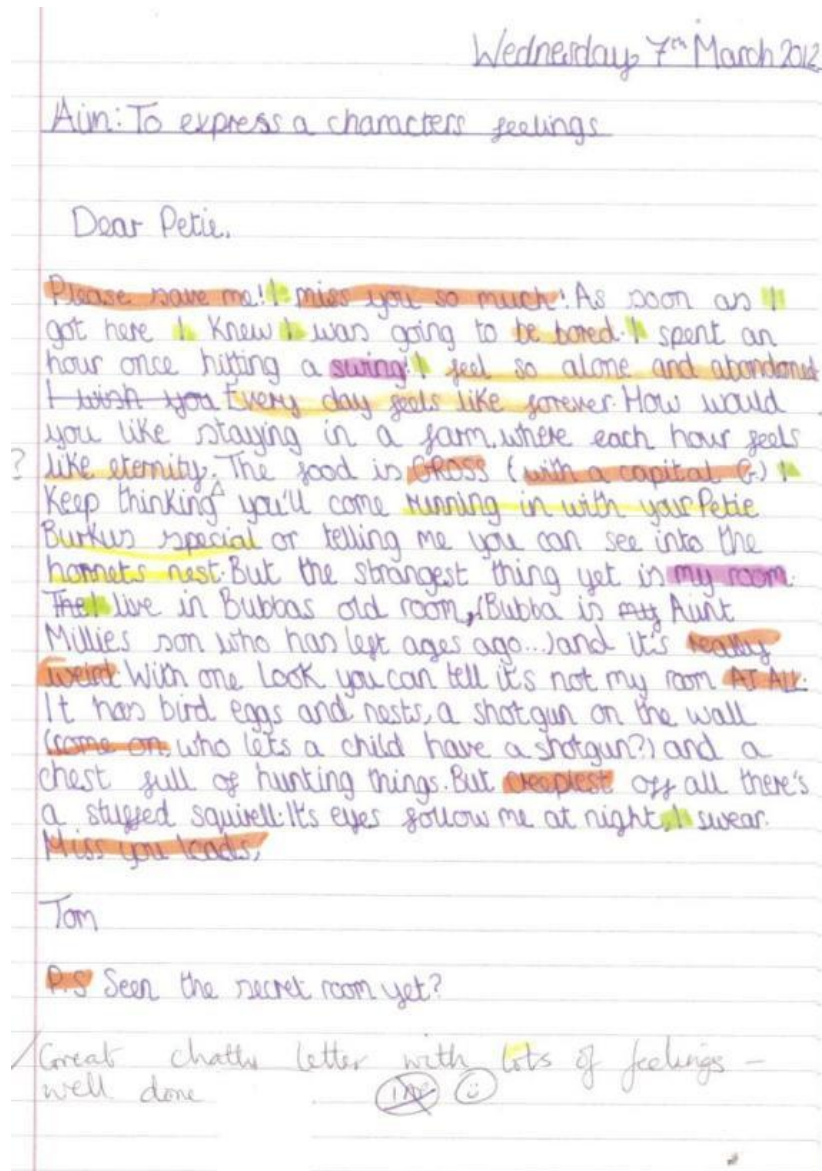 Wednesday 7th March 2012
Aim: To express a characters feelings
Dear Petie,
Please save me! I miss you so much! As soon as I
got here I knew I was going to be bored. I spent an
hour once hitting a swing. I feel so alone and abandoned
I wish you Every day feels like forever. How would
you like staying in a farm, where each hour feels
? like eternity. The food is GROSS (with a capital G.) I
keep thinking you'll come running in with your Petie
Burkus special or telling me you can see into the
hornets nest. But the strangest thing yet is my room.
The I live in Bubbas old room, (Bubba is my Aunt
Millies son who has left ages ago...) and it's really
weird. With one look you can tell it's not my room AT ALL.
It has bird eggs and nests, a shotgun on the wall
(come on, who lets a child have a shotgun?) and a
chest full of hunting things. But creapiest off all there's
a stuffed squirell. It's eyes follow me at night, I swear.
Miss you loads,
Tom
P.S Seen the secret room yet?
Great chatty letter with lots of feelings –
well done